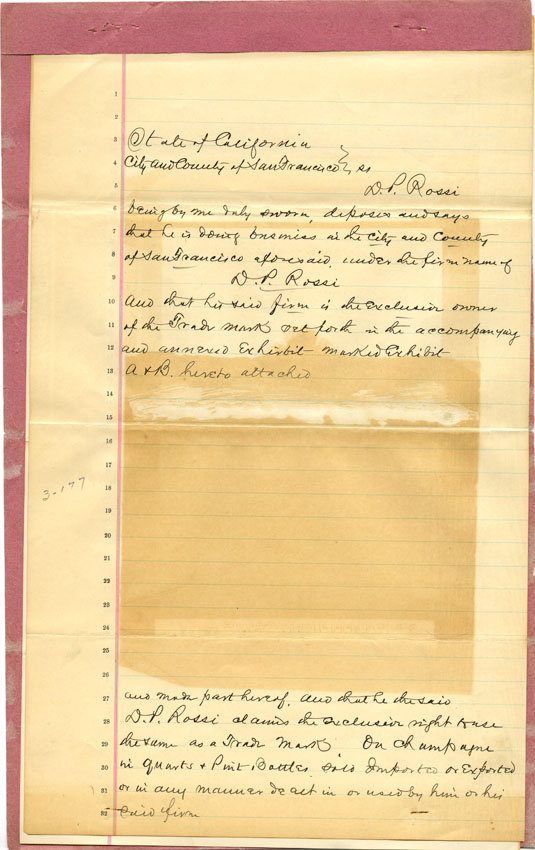 State of California
City and County of San Francisco } ss
D. P. Rossi
being by me duly sworn, deposes and says
that he is doing business in the City and County
of San Francisco aforesaid, under the firm name of
D. P. Rossi
And that his said firm is the exclusive owner
of the Trade Mark set forth in the accompanying
and annexed Exhibit marked Exhibit
A & B. hereto attached
3-177
and made part hereof, and that he the said
D. P. Rossi claims the exclusive right to use
the same as a Trade Mark. On Champagne
in Quarts & Pint Bottles sold Imported or Exported
or in any manner dealt in or used by him or his
said firm
1
2
3
4
5
6
7
8
9
10
11
12
13
14
15
16
17
18
19
20
21
22
23
24
25
26
27
28
29
30
31
32